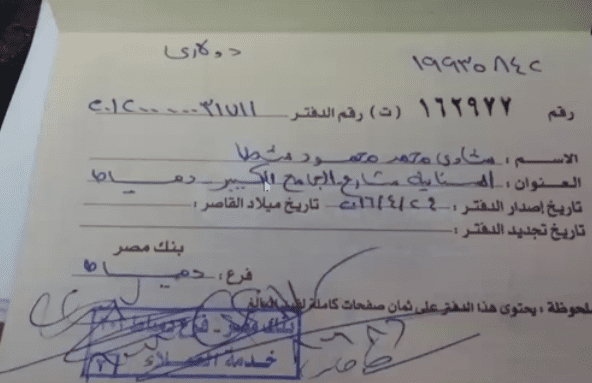 دولارى
١٩٩٣٥٨٤٢
رقم ١٦٢٩٧٧ (ت) رقم الدفتر
الاسم : محمد محمود شطا
العنوان : السنانية شارع الجامع الكبير دمياط
تاريخ إصدار الدفتر : ٢٠١٦/٤/٢٤ تاريخ ميلاد القاصر :
تاريخ تجديد الدفتر :
بنك مصر
فرع : دمياط
ملحوظة : يحتوى هذا الدفتر على ثمان صفحات كاملة
بنك مصر - فرع دمياط
خدمة العملاء